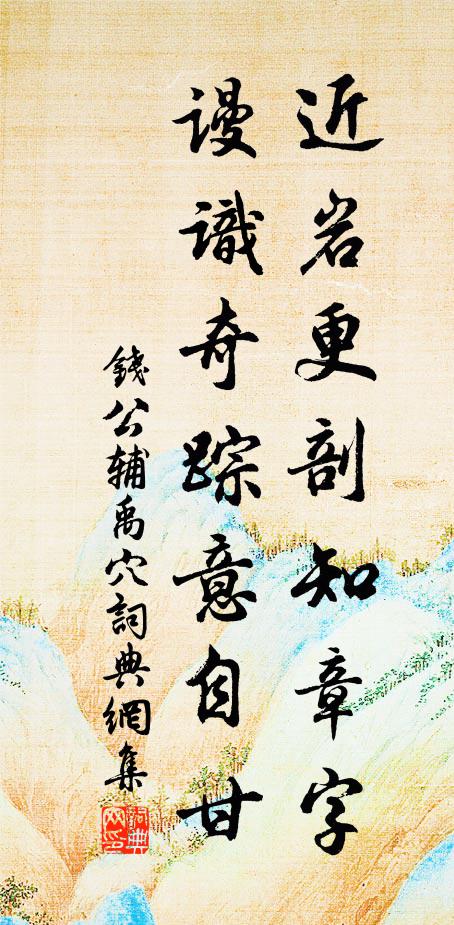 近岩更剖知章字
谩識奇踪意自甘
錢公辅禹穴詞典網集